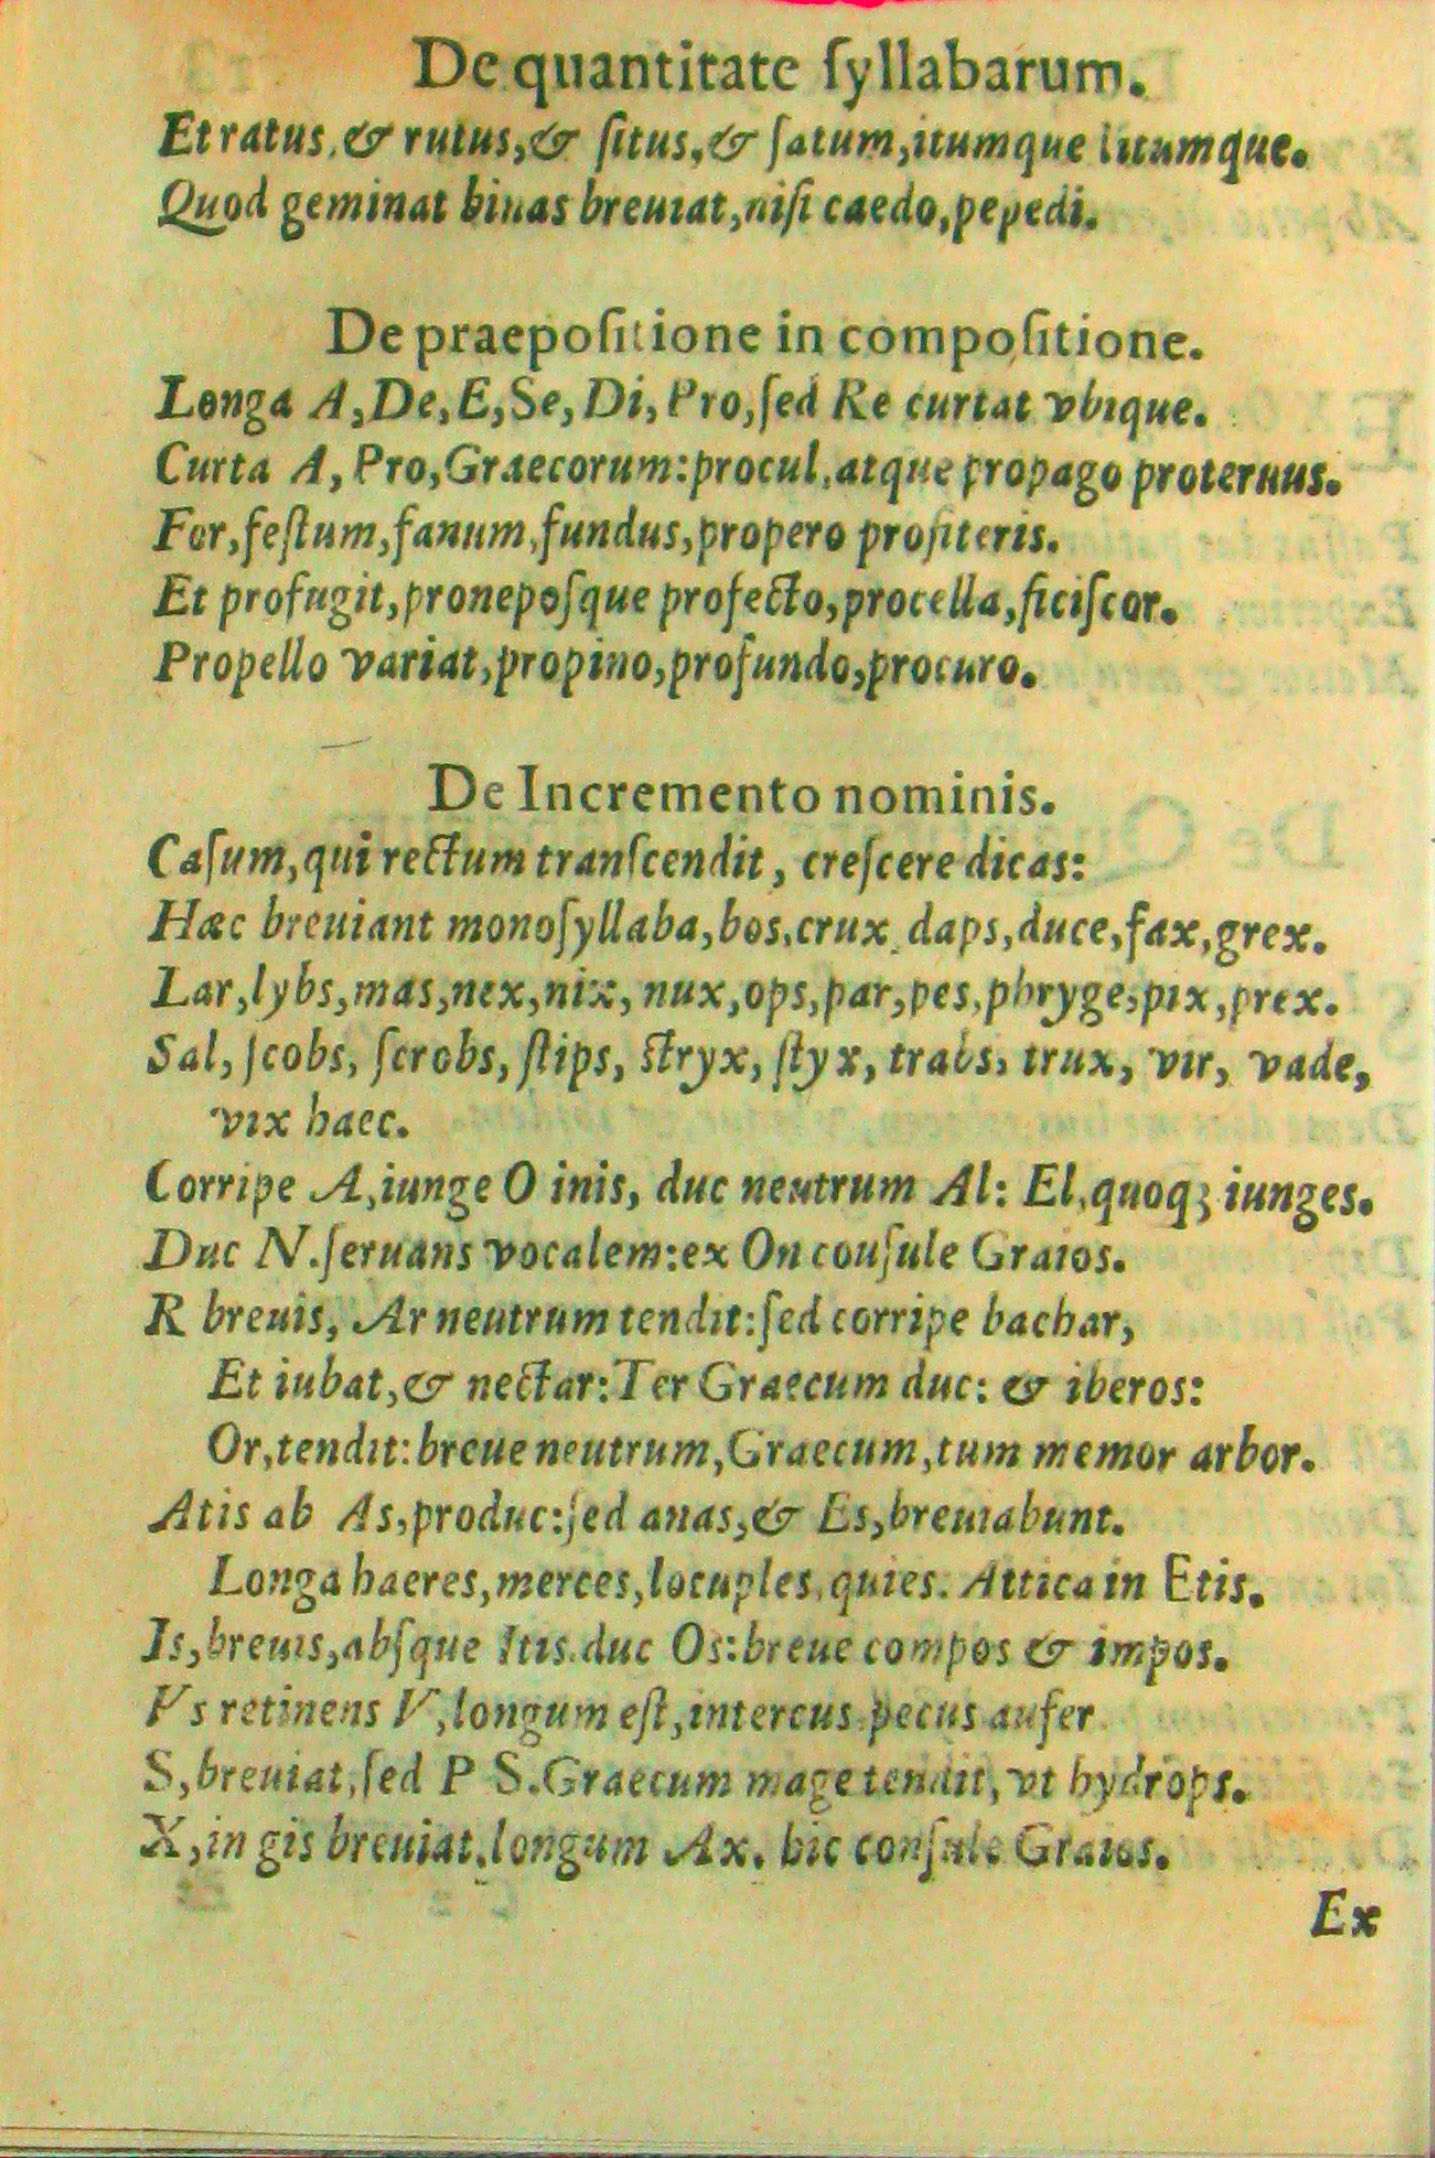 De quantitate ſyllabarum.
Et ratus, & rutus, & ſitus, & ſatum, itumque litumque.
Quod geminat binas breuiat, niſi caedo, pepedi.
De praepoſitione in compoſitione.
Longa A, De, E, Se, Di, Pro, ſed Re curtat vbique.
Curta A, Pro, Graecorum: procul, atque propago proteruus.
For, feſtum, fanum, fundus, propero profiteris.
Et profugit, pronepoſque profecto, procella, ficiſcor.
Propello variat, propino, profundo, procuro.
De Incremento nominis.
Caſum, qui rectum tranſcendit, creſcere dicas:
Hæc breuiant monoſyllaba, bos, crux, daps, duce, fax, grex.
Lar, lybs, mas, nex, nix, nux, ops, par, pes, phryge, pix, prex.
Sal, ſcobs, ſcrobs, ſtips, ſtryx, ſtyx, trabs, trux, vir, vade,
vix haec.
Corripe A, iunge O inis, duc neutrum Al: El, quoq; iunges.
Duc N. ſeruans vocalem: ex On couſule Graios.
R breuis, Ar neutrum tendit: ſed corripe bachar,
Et iubat, & nectar: Ter Graecum duc: & iberos:
Or, tendit: breue neutrum, Graecum, tum memor arbor.
Atis ab As, produc: ſed anas, & Es, breuiabunt.
Longa haeres, merces, locuples, quies. Attica in Etis.
Is, breuis, abſque Itis. duc Os: breue compos & impos.
Vs retinens V, longum eſt, intercus pecus aufer
S, breuiat, ſed P S. Graecum mage tendit, vt hydrops.
X, in gis breuiat, longum Ax. hic conſule Graios.
Ex